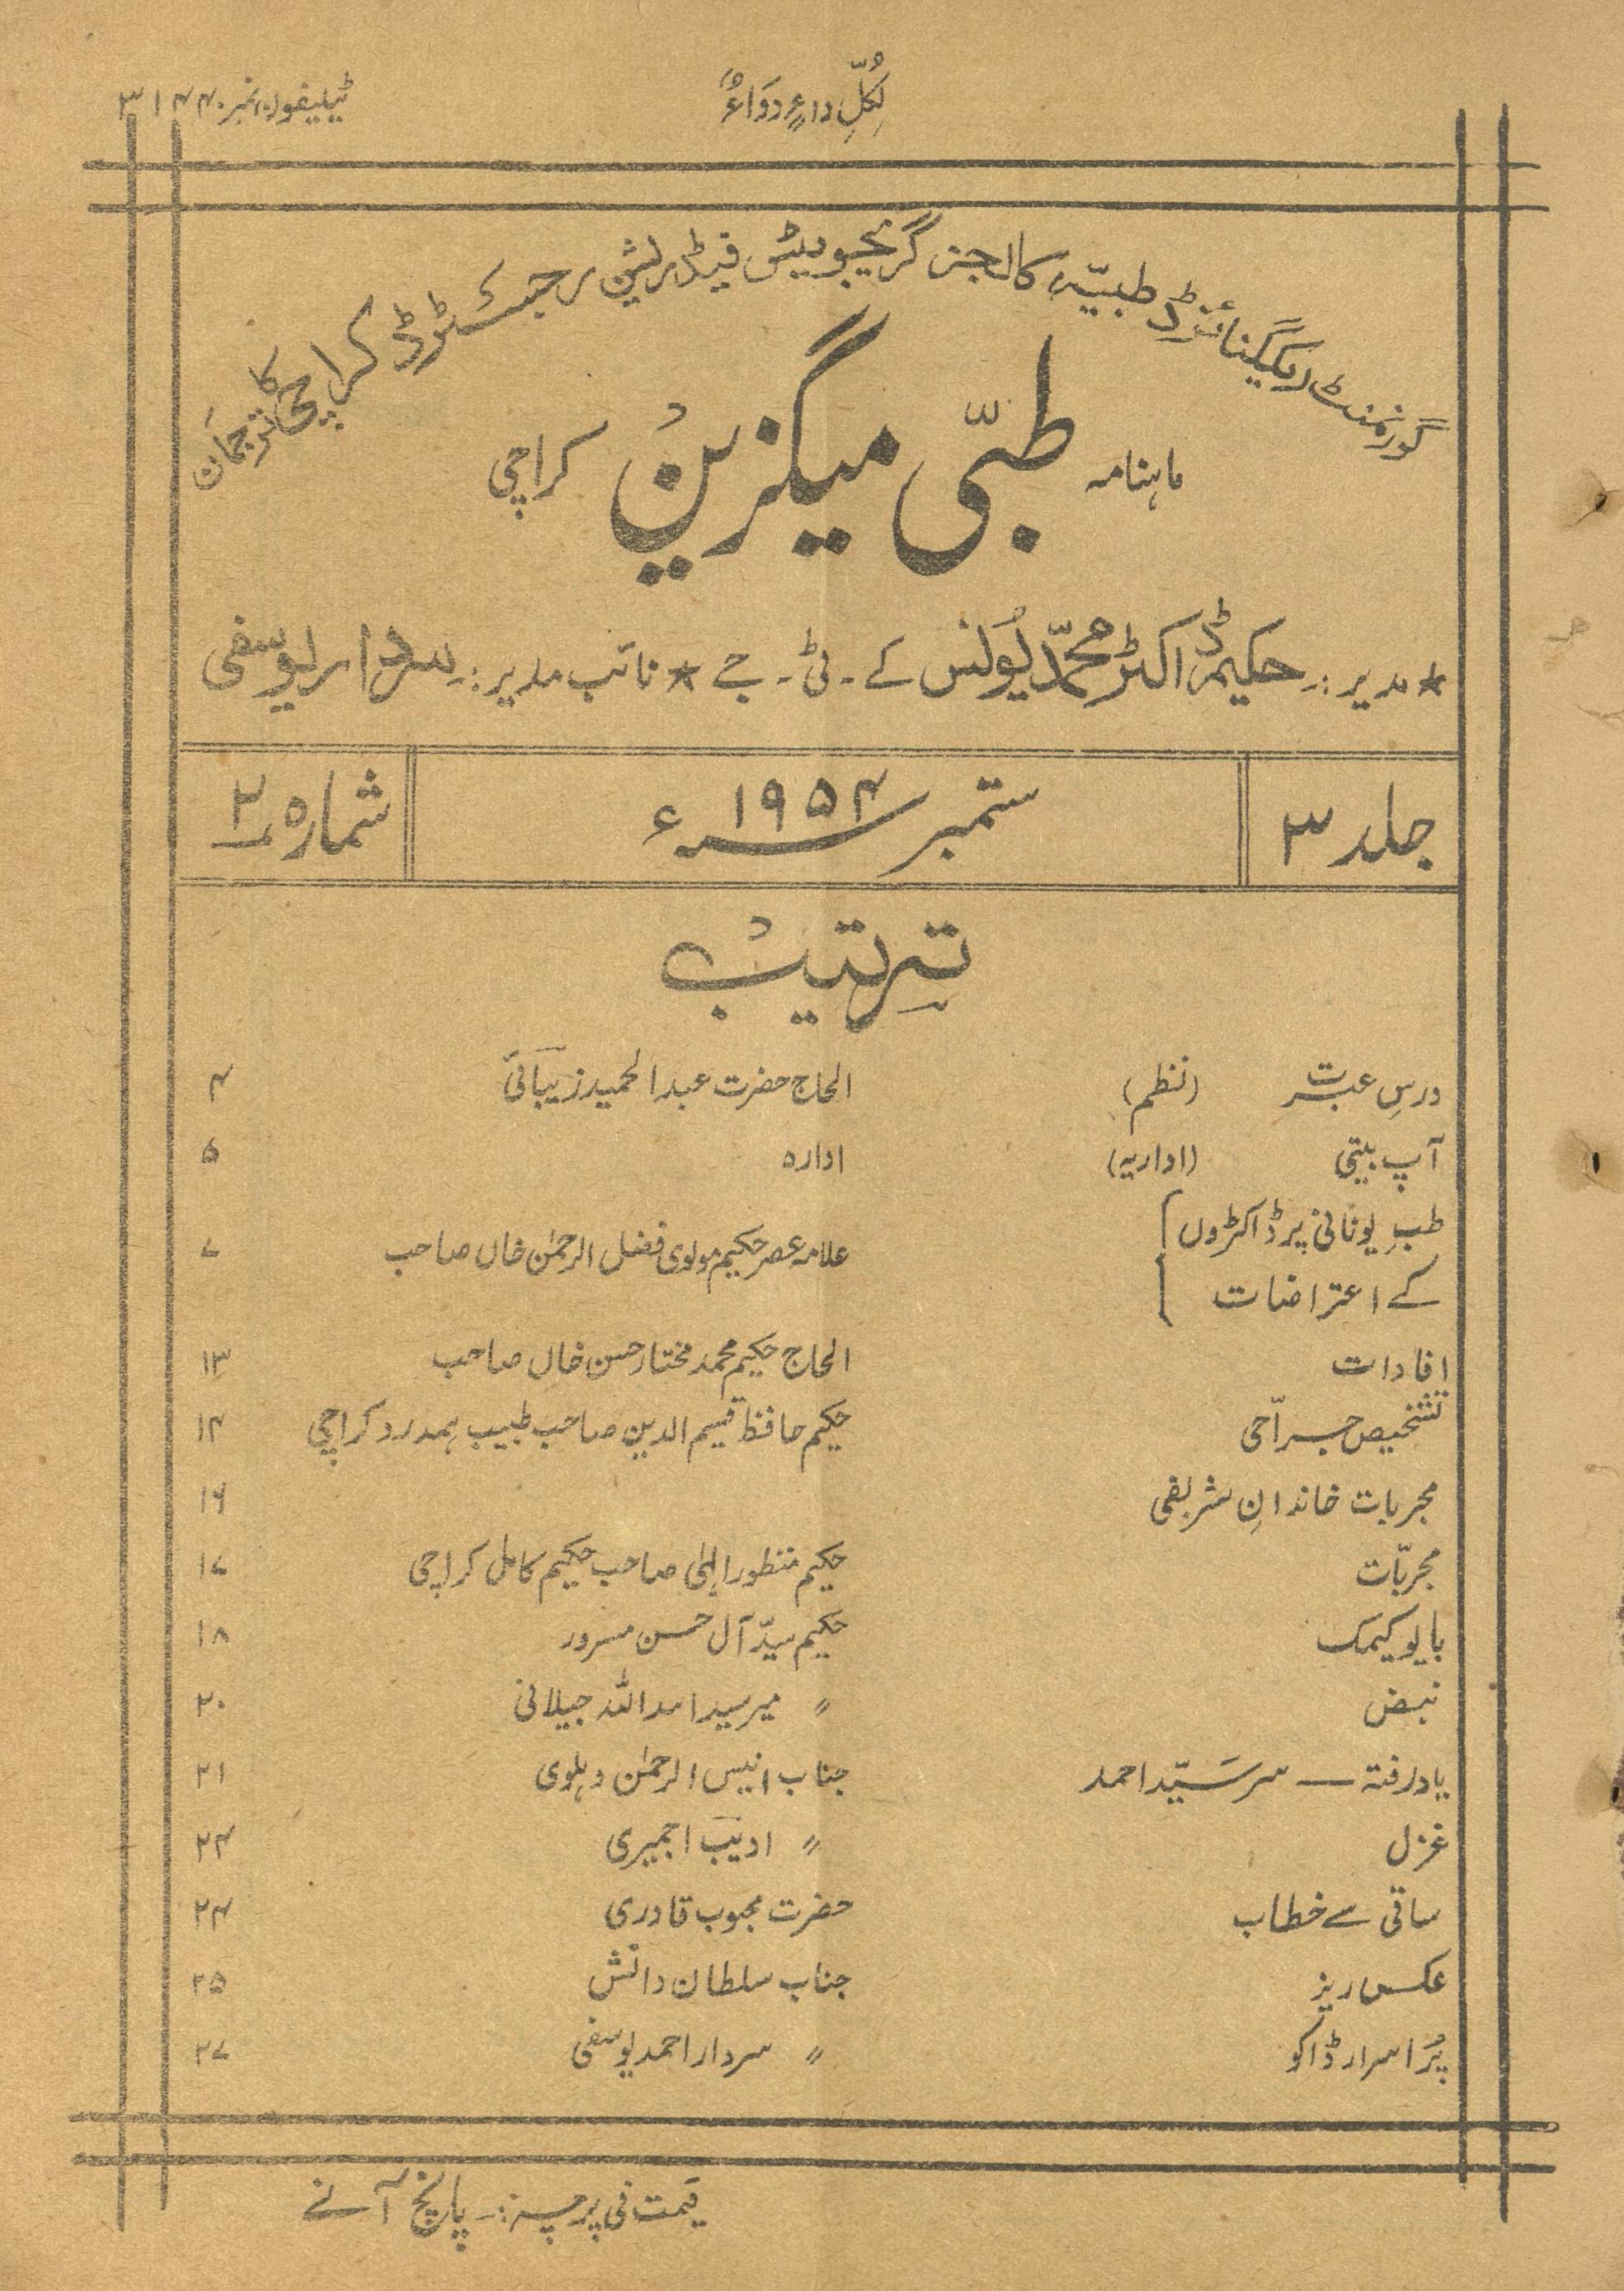 لِکُلِّ داءٍ دَوَاءٌ
ٹیلیفون نمبر ۳۱۴۴۰
گورنمنٹ ریکگنائزڈ طبیّہ کالجز گریجویٹس فیڈریشن رجسٹرڈ کراچی کا ترجمان
ماہنامہ طبّی میگزین کراچی
★ مدیر :۔ حکیم ڈاکٹر محمّد یُونس کے ۔ ٹی ۔ جے ★ نائب مدیر :۔ سردار یوسفی
جلد ۳
ستمبر ۱۹۵۴ء
شمارہ ۲
ترتیب
درسِ عبرت (نظم) الحاج حضرت عبدالحمید زیبائی ۴
آپ بیتی (اداریہ) ادارہ ۵
طبِ یونانی پر ڈاکٹروں
کے اعتراضات علامہ عصر حکیم مولوی فضل الرحمٰن خاں صاحب ۷
افادات الحاج حکیم محمد مختار حسن خاں صاحب ۱۳
تشخیص جرّاحی حکیم حافظ قسیم الدین صاحب طبیب ہمدرد کراچی ۱۴
مجربات خاندانِ شریفی ۱۶
مجربّات حکیم منظور الٰہی صاحب حکیم کامل کراچی ۱۷
بایوکیمک حکیم سیّد آل حسن مسرور ۱۸
نبض 〃 میر سید اسد اللہ جیلانی ۲۰
یادِ رفتہ — سر سَیّد احمد جناب انیس الرحمٰن دہلوی ۲۱
غزل 〃 ادیب اجمیری ۲۴
ساقی سے خطاب حضرت محبوب قادری ۲۴
عکس ریز جناب سلطان دانش ۲۵
پُراسرار ڈاکو 〃 سردار احمد یوسفی ۲۷
قیمت فی پرچہ :۔ پانچ آنے